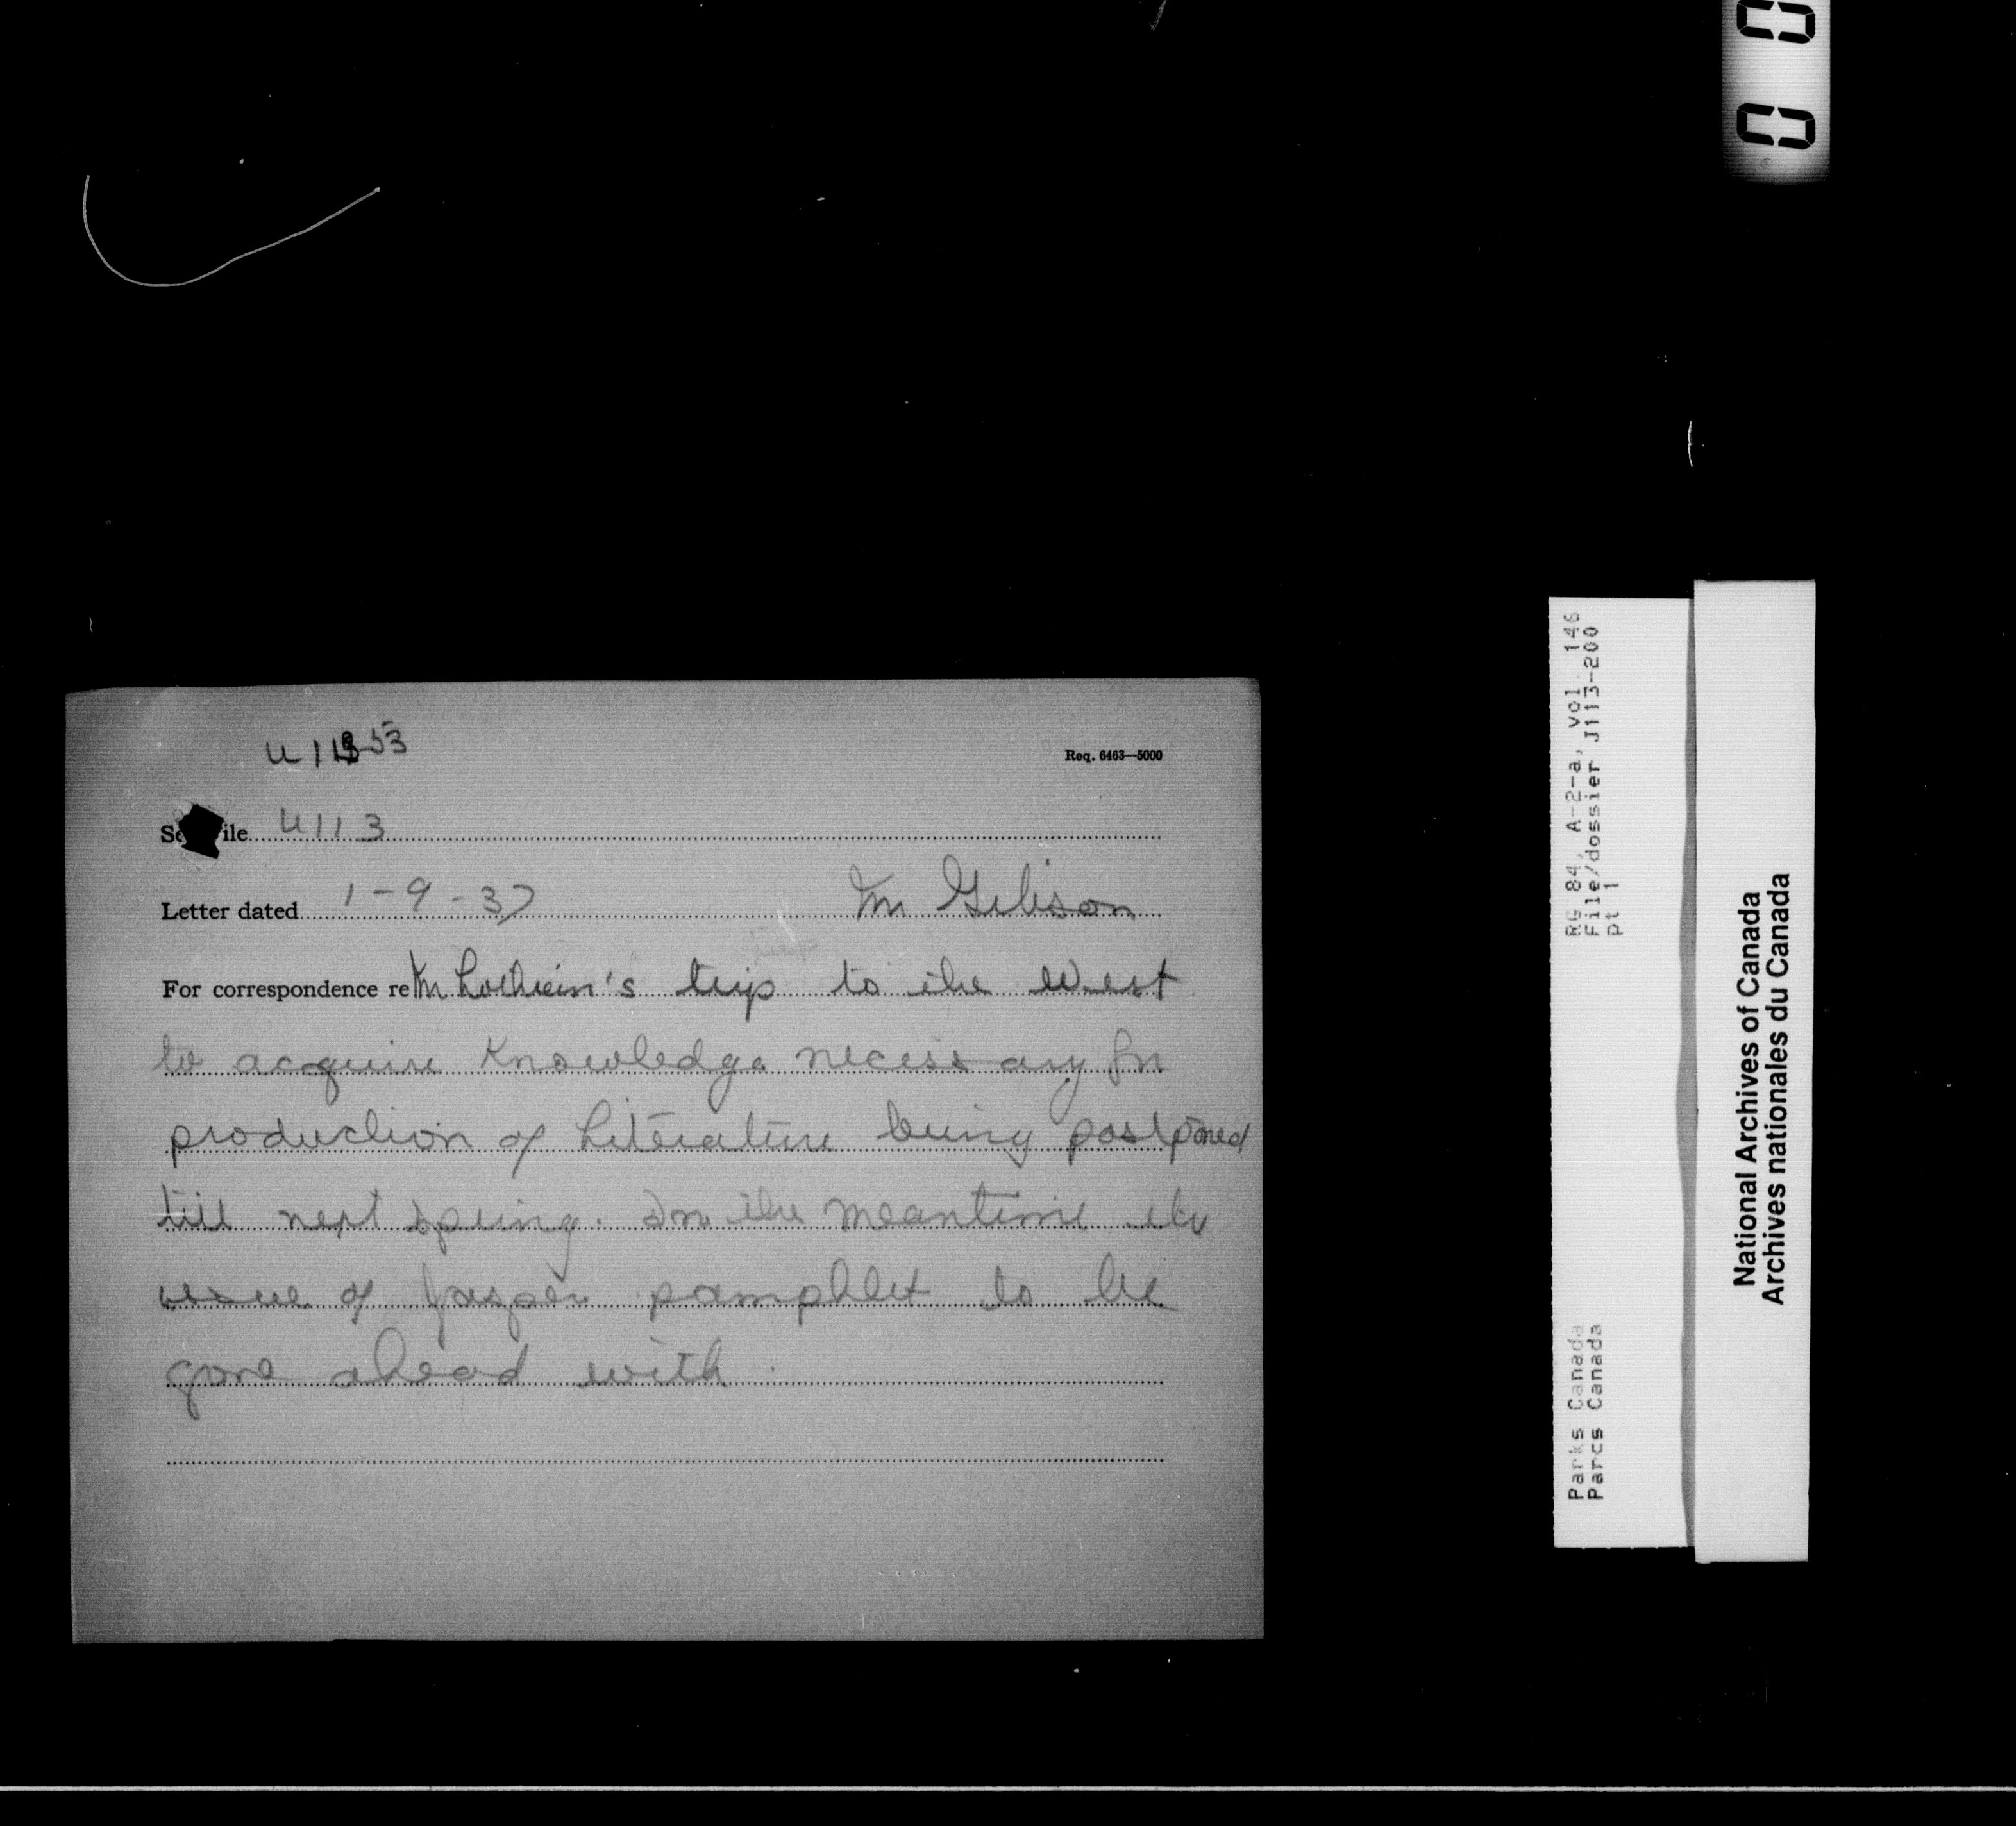 Req. 6463—5000
See File U113
Letter dated 1-9-37 Mr Gibson
For correspondence re Mr Lothian's trip to the West
to acquire Knowledge necessary for
production of Literature being postponed
till next spring. In the meantime the
issue of Jasper pamphlet to be
gone ahead with.
0 0
RG 84, A-2-a, vol. 146
File/dossier J113-200
pt 1
Parks Canada
Parcs Canada
National Archives of Canada
Archives nationales du Canada